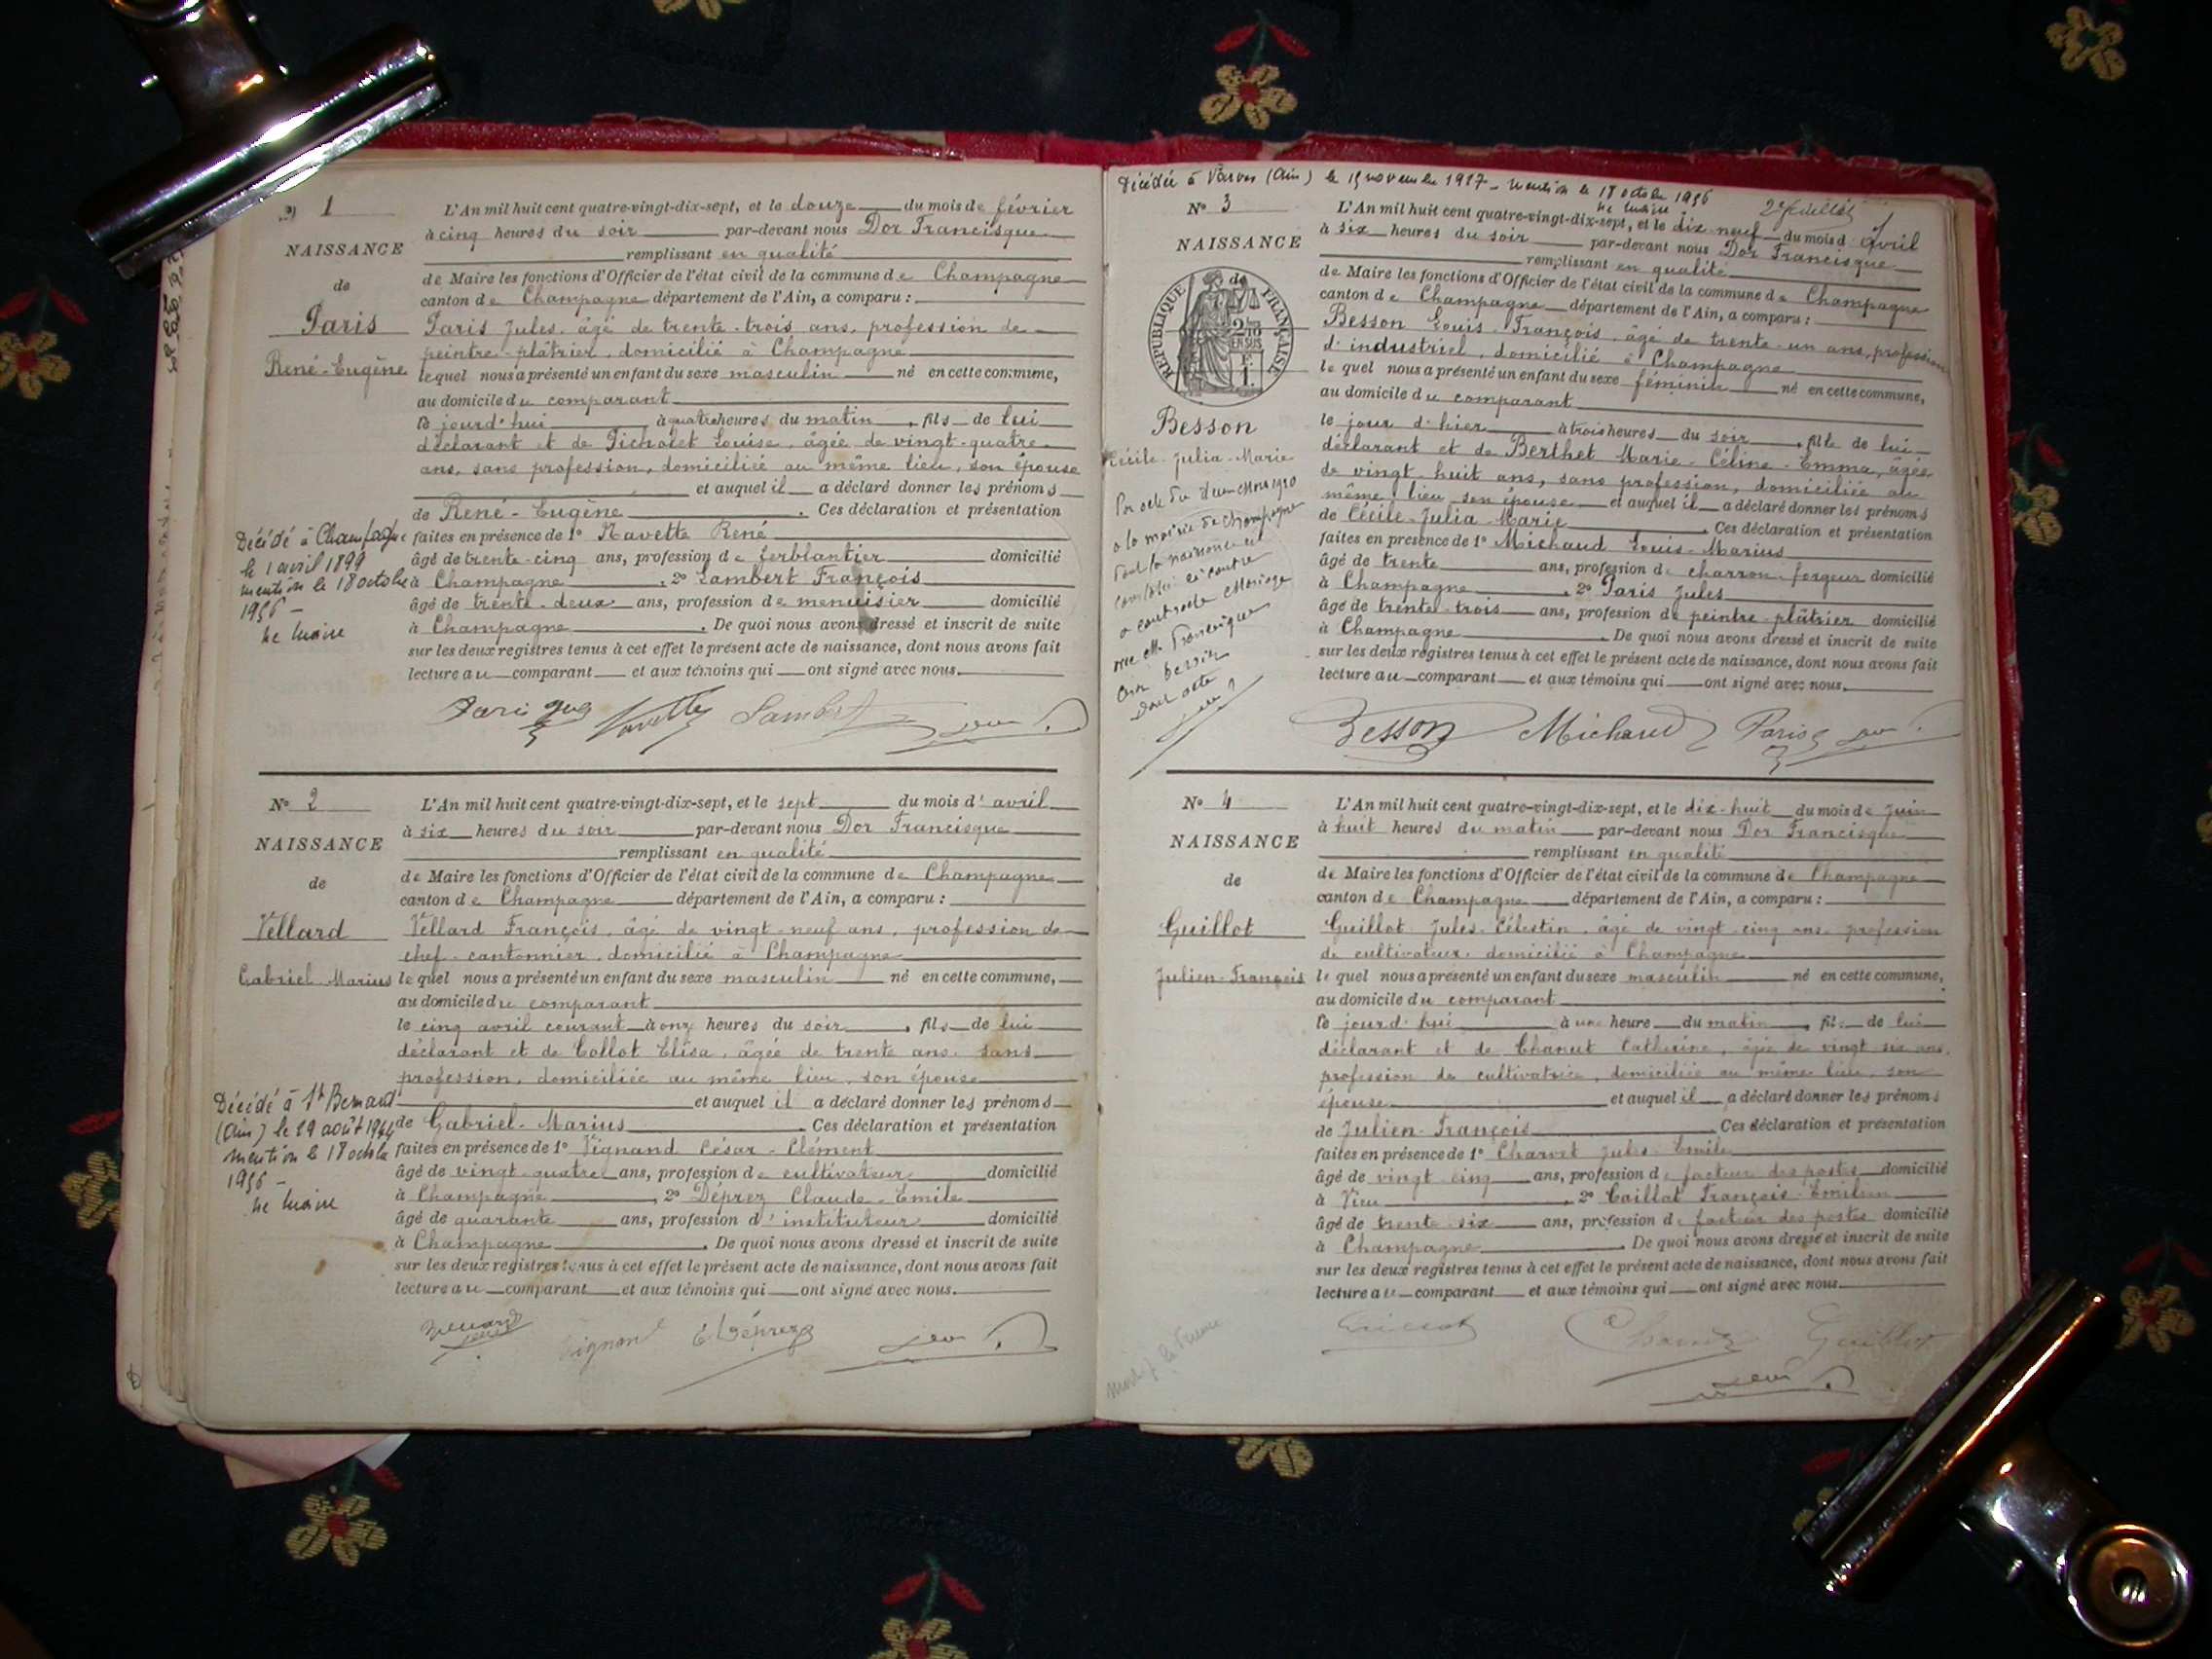 1
NAISSANCE
de
Paris
René-Eugène
L'An mil huit cent quatre-vingt-dix-sept, et le douze du mois de février
à cinq heures du soir par-devant nous Dor Francisque
remplissant en qualité
de Maire les fonctions d'Officier de l'état civil de la commune de Champagne
canton de Champagne département de l'Ain, a comparu :
Paris Jules, âgé de trente-trois ans, profession de
peintre-plâtrier, domicilié à Champagne
lequel nous a présenté un enfant du sexe masculin né en cette commune,
au domicile du comparant
le jourd'hui à quatre heures du matin, fils de lui
déclarant et de Picholet Louise, âgée de vingt-quatre
ans, sans profession, domiciliée au même lieu, son épouse
et auquel il a déclaré donner les prénoms
de René-Eugène. Ces déclaration et présentation
faites en présence de 1° Navette René
âgé de trente-cinq ans, profession de ferblantier domicilié
à Champagne, 2° Lambert François
âgé de trente-deux ans, profession de menuisier domicilié
à Champagne. De quoi nous avons dressé et inscrit de suite
sur les deux registres tenus à cet effet le présent acte de naissance, dont nous avons fait
lecture au comparant et aux témoins qui ont signé avec nous.
Décédé à Champagne
le 1 avril 1899
mention le 18 octobre
1956 -
Le Maire
Lambert
N° 2
NAISSANCE
de
Vellard
Gabriel Marius
L'An mil huit cent quatre-vingt-dix-sept, et le sept du mois d'avril
à six heures du soir par-devant nous Dor Francisque
remplissant en qualité
de Maire les fonctions d'Officier de l'état civil de la commune de Champagne
canton de Champagne département de l'Ain, a comparu :
Vellard François, âgé de vingt-neuf ans, profession de
chef-cantonnier, domicilié à Champagne
lequel nous a présenté un enfant du sexe masculin né en cette commune,
au domicile du comparant
le cinq avril courant à onze heures du soir, fils de lui
déclarant et de Collot Elisa, âgée de trente ans, sans
profession, domiciliée au même lieu, son épouse
et auquel il a déclaré donner les prénoms
de Gabriel-Marius. Ces déclaration et présentation
faites en présence de 1° Vignand César-Clément
âgé de vingt-quatre ans, profession de cultivateur domicilié
à Champagne, 2° Déprez Claude-Emile
âgé de quarante ans, profession d'instituteur domicilié
à Champagne. De quoi nous avons dressé et inscrit de suite
sur les deux registres tenus à cet effet le présent acte de naissance, dont nous avons fait
lecture au comparant et aux témoins qui ont signé avec nous.
Décédé à St Bernard
(Ain) le 29 août 1944
mention le 18 octobre
1956 -
Le Maire
E Déprez
Décédée à (Ain) le 15 novembre 1917 - mention le 18 octobre 1956
Le Maire
2e feuillet
N° 3
NAISSANCE
de
REPUBLIQUE FRANÇAISE
2/10 EN SUS
F. 1.
Besson
Cécile-Julia-Marie
L'An mil huit cent quatre-vingt-dix-sept, et le dix-neuf du mois d'avril
à six heures du soir par-devant nous Dor Francisque
remplissant en qualité
de Maire les fonctions d'Officier de l'état civil de la commune de Champagne
canton de Champagne département de l'Ain, a comparu :
Besson Louis-François, âgé de trente-un ans, profession
d'industriel, domicilié à Champagne
lequel nous a présenté un enfant du sexe féminin né en cette commune,
au domicile du comparant
le jour d'hier à trois heures du soir, fille de lui
déclarant et de Berthet Marie-Céline-Emma, âgée
de vingt-huit ans, sans profession, domiciliée au
même lieu son épouse et auquel il a déclaré donner les prénoms
de Cécile-Julia-Marie. Ces déclaration et présentation
faites en présence de 1° Michaud Louis-Marius
âgé de trente ans, profession de charron-forgeur domicilié
à Champagne, 2° Paris Jules
âgé de trente-trois ans, profession de peintre-plâtrier domicilié
à Champagne. De quoi nous avons dressé et inscrit de suite
sur les deux registres tenus à cet effet le présent acte de naissance, dont nous avons fait
lecture au comparant et aux témoins qui ont signé avec nous.
à la mairie de Champagne
a contracté mariage
Dont acte
Besson Michaud Paris
N° 4
NAISSANCE
de
Guillot
Julien-François
L'An mil huit cent quatre-vingt-dix-sept, et le dix-huit du mois de juin
à huit heures du matin par-devant nous Dor Francisque
remplissant en qualité
de Maire les fonctions d'Officier de l'état civil de la commune de Champagne
canton de Champagne département de l'Ain, a comparu :
Guillot Jules-Célestin, âgé de vingt-cinq ans, profession
de cultivateur, domicilié à Champagne
lequel nous a présenté un enfant du sexe masculin né en cette commune,
au domicile du comparant
le jourd'hui à une heure du matin, fils de lui
déclarant et de Chanut Catherine, âgée de vingt-six ans,
profession de cultivatrice, domiciliée au même lieu, son
épouse et auquel il a déclaré donner les prénoms
de Julien-François. Ces déclaration et présentation
faites en présence de 1° Charvet Jules-Emile
âgé de vingt-cinq ans, profession de facteur des postes domicilié
à Vieu, 2° Caillat François-Emilien
âgé de trente-six ans, profession de facteur des postes domicilié
à Champagne. De quoi nous avons dressé et inscrit de suite
sur les deux registres tenus à cet effet le présent acte de naissance, dont nous avons fait
lecture au comparant et aux témoins qui ont signé avec nous.
Guillot